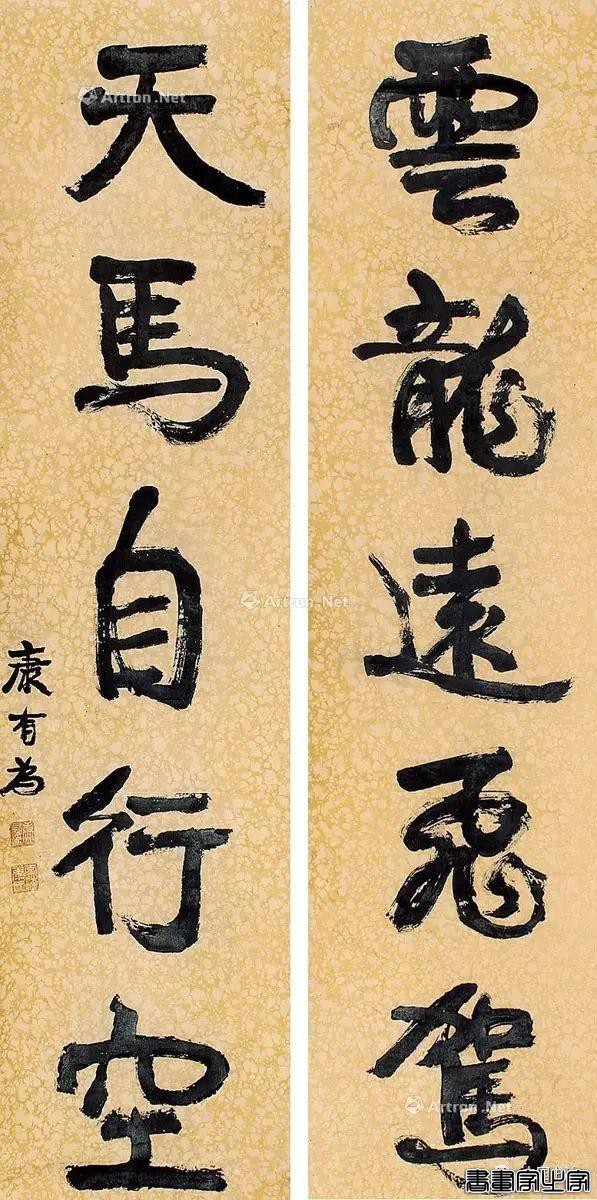 雲龍遠飛駕
天馬自行空
康有為
Artron.Net
Artron.Net
Artron.Net
書畫家之家